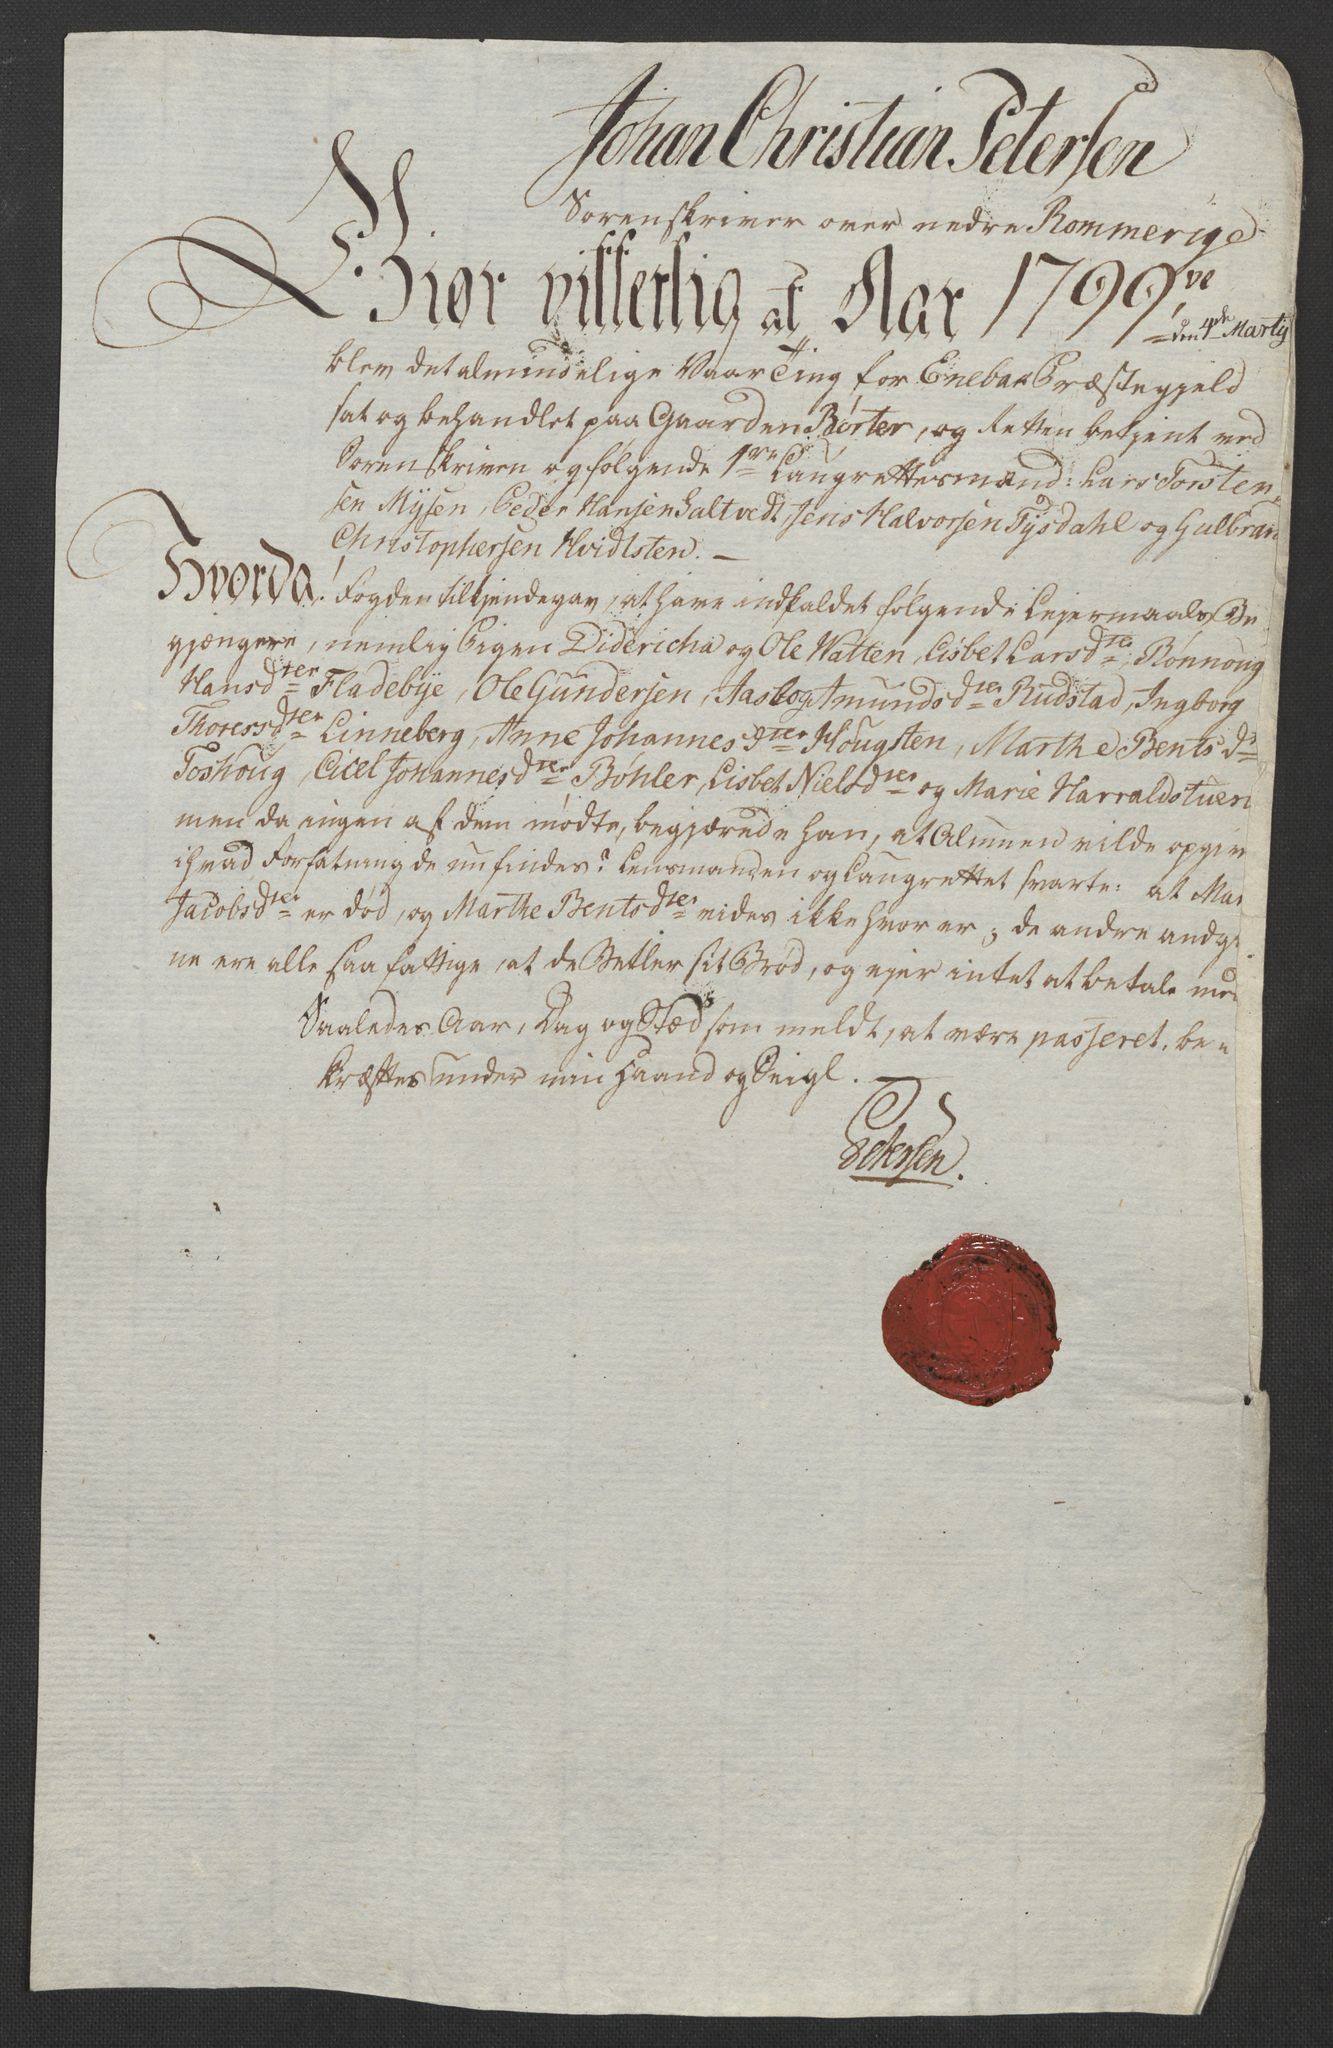 Johan Christian Petersen
Sorenskriver over nedre Rommerige
Giør vitterlig at Aar 1799 ve den 4de Martij
blev det almindelige Vaar Ting for Enebak Præstegjeld
sat og behandlet paa Gaarden Børter, og Retten betjent med
Sorenskriven og følgende Laugrettesmænd: Lars Torsten-
sen Mysen, Peder Hansen Saltvedt, Jens Halvorsen Tysdahl og Gulbran
Christophersen Hvidtsten. —
Hvorda. Fogden tilkjendegav, at have indkaldet følgende Lejermaals Be
gjængere, nemlig Pigen Didericha og Ole Watten, Lisbet Larsdter, Rønnoug
Hansdter Fladebye, Ole Gundersen, Aasbog Amundsdter Rudstad, Ingborg
Thoresdter Linneberg, Anne Johannesdter Hougsten, Marthe Bentsdr
Toshoug, Cicel Johannesdter Bøhler, Lisbet Nielsdter og Marie Harraldstuen
men da ingen af dem mødte, begjærede han, at Almuen vilde opgiv
i hvad Forfatning de nu findes? Lensmanden og Laugrettet svarte: at Mar
Jacobsdter er død, og Marthe Bentsdter vides ikke hvor er; de andre andgi
ne ere alle saa fattige, at de Betler sit Brød, og ejer intet at betale med
Saaledes Aar, Dag og Stæd som meldt, at være passeret, be-
kræftes under min Haand og Seigl. —
Petersen.